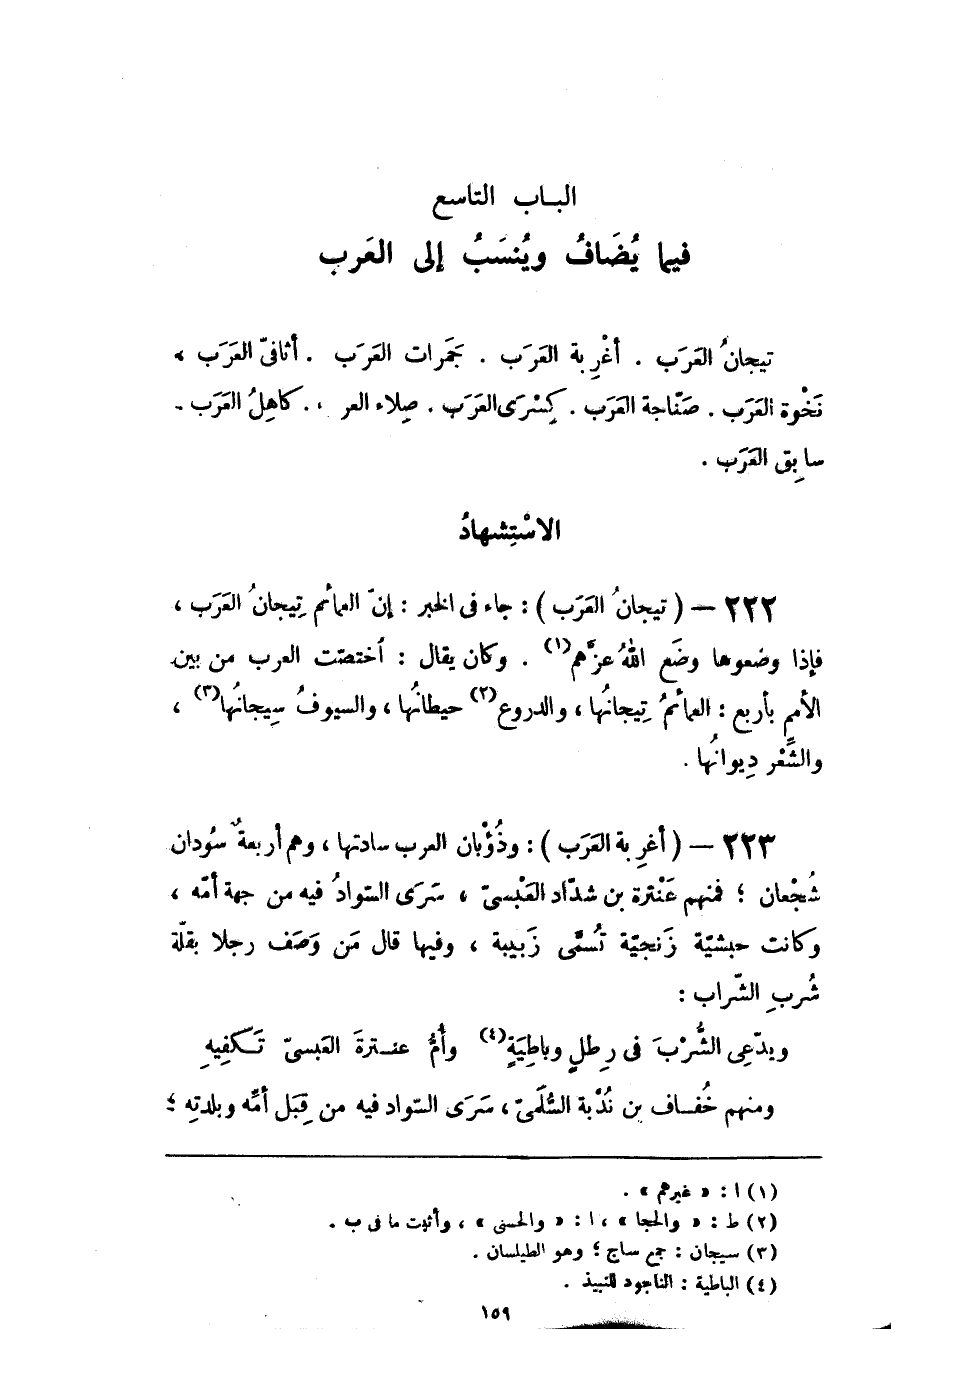 البـاب التاسع
فيما يُضَافُ ويُنسَبُ إلى العَرب
تيجانُ العَرَب . أغْرِبة العَرَب . جَمَرات العَرَب . أثافىّ العَرَب .
نَخْوة العَرَب . صَنّاجة العَرَب . كِسْرَى العَرَب . صِلاء العر . كاهِلُ العَرَب .
سابِق العَرَب .
الاسْتِشهادُ
٢٢٢ – ( تيجانُ العَرَب ) : جاء فى الخبر : إنّ العمائم تِيجانُ العَرَب ،
فإذا وضعوها وضَع اللهُ عزَّهم(١) . وكان يقال : اُختصّت العرب من بين
الأممِ بأربع : العمائمُ تِيجانُها ، والدروع(٢) حيطانُها ، والسيوفُ سِيجانُها(٣) ،
والشِّعْر دِيوانُها .
٢٢٣ – ( أغرِبة العَرَب ) : وذُؤْبان العرب سادتها ، وهم أربعةٌ سُودان
شُجْعان ؛ فمنهم عَنْترة بن شدّاد العَبْسىّ ، سَرَى السّوادُ فيه من جهة أمّه ،
وكانت حبشيّة زَنجيّة تُسمَّى زَبيبة ، وفيها قال مَن وَصَف رجلا بقلّة
شُربِ الشّراب :
ويدّعِى الشُّرْبَ فى رِطلٍ وباطِيَةٍ(٤) وأُمُّ عنـترةَ العَبسىّ تَـكفِيهِ
ومنهم خُفـاف بن نُدْبة السُّلَمىّ ، سَرَى السّواد فيه من قِبَل أمِّه وبلدتِه ؛
(١) ا : « غيرهم » .
(٢) ط : « والحجا » ، ا : « والحسنى » ، وأثبت ما فى ب .
(٣) سيجان : جمع ساج ؛ وهو الطيلسان .
(٤) الباطية : الناجود للنبيذ .
١٥٩